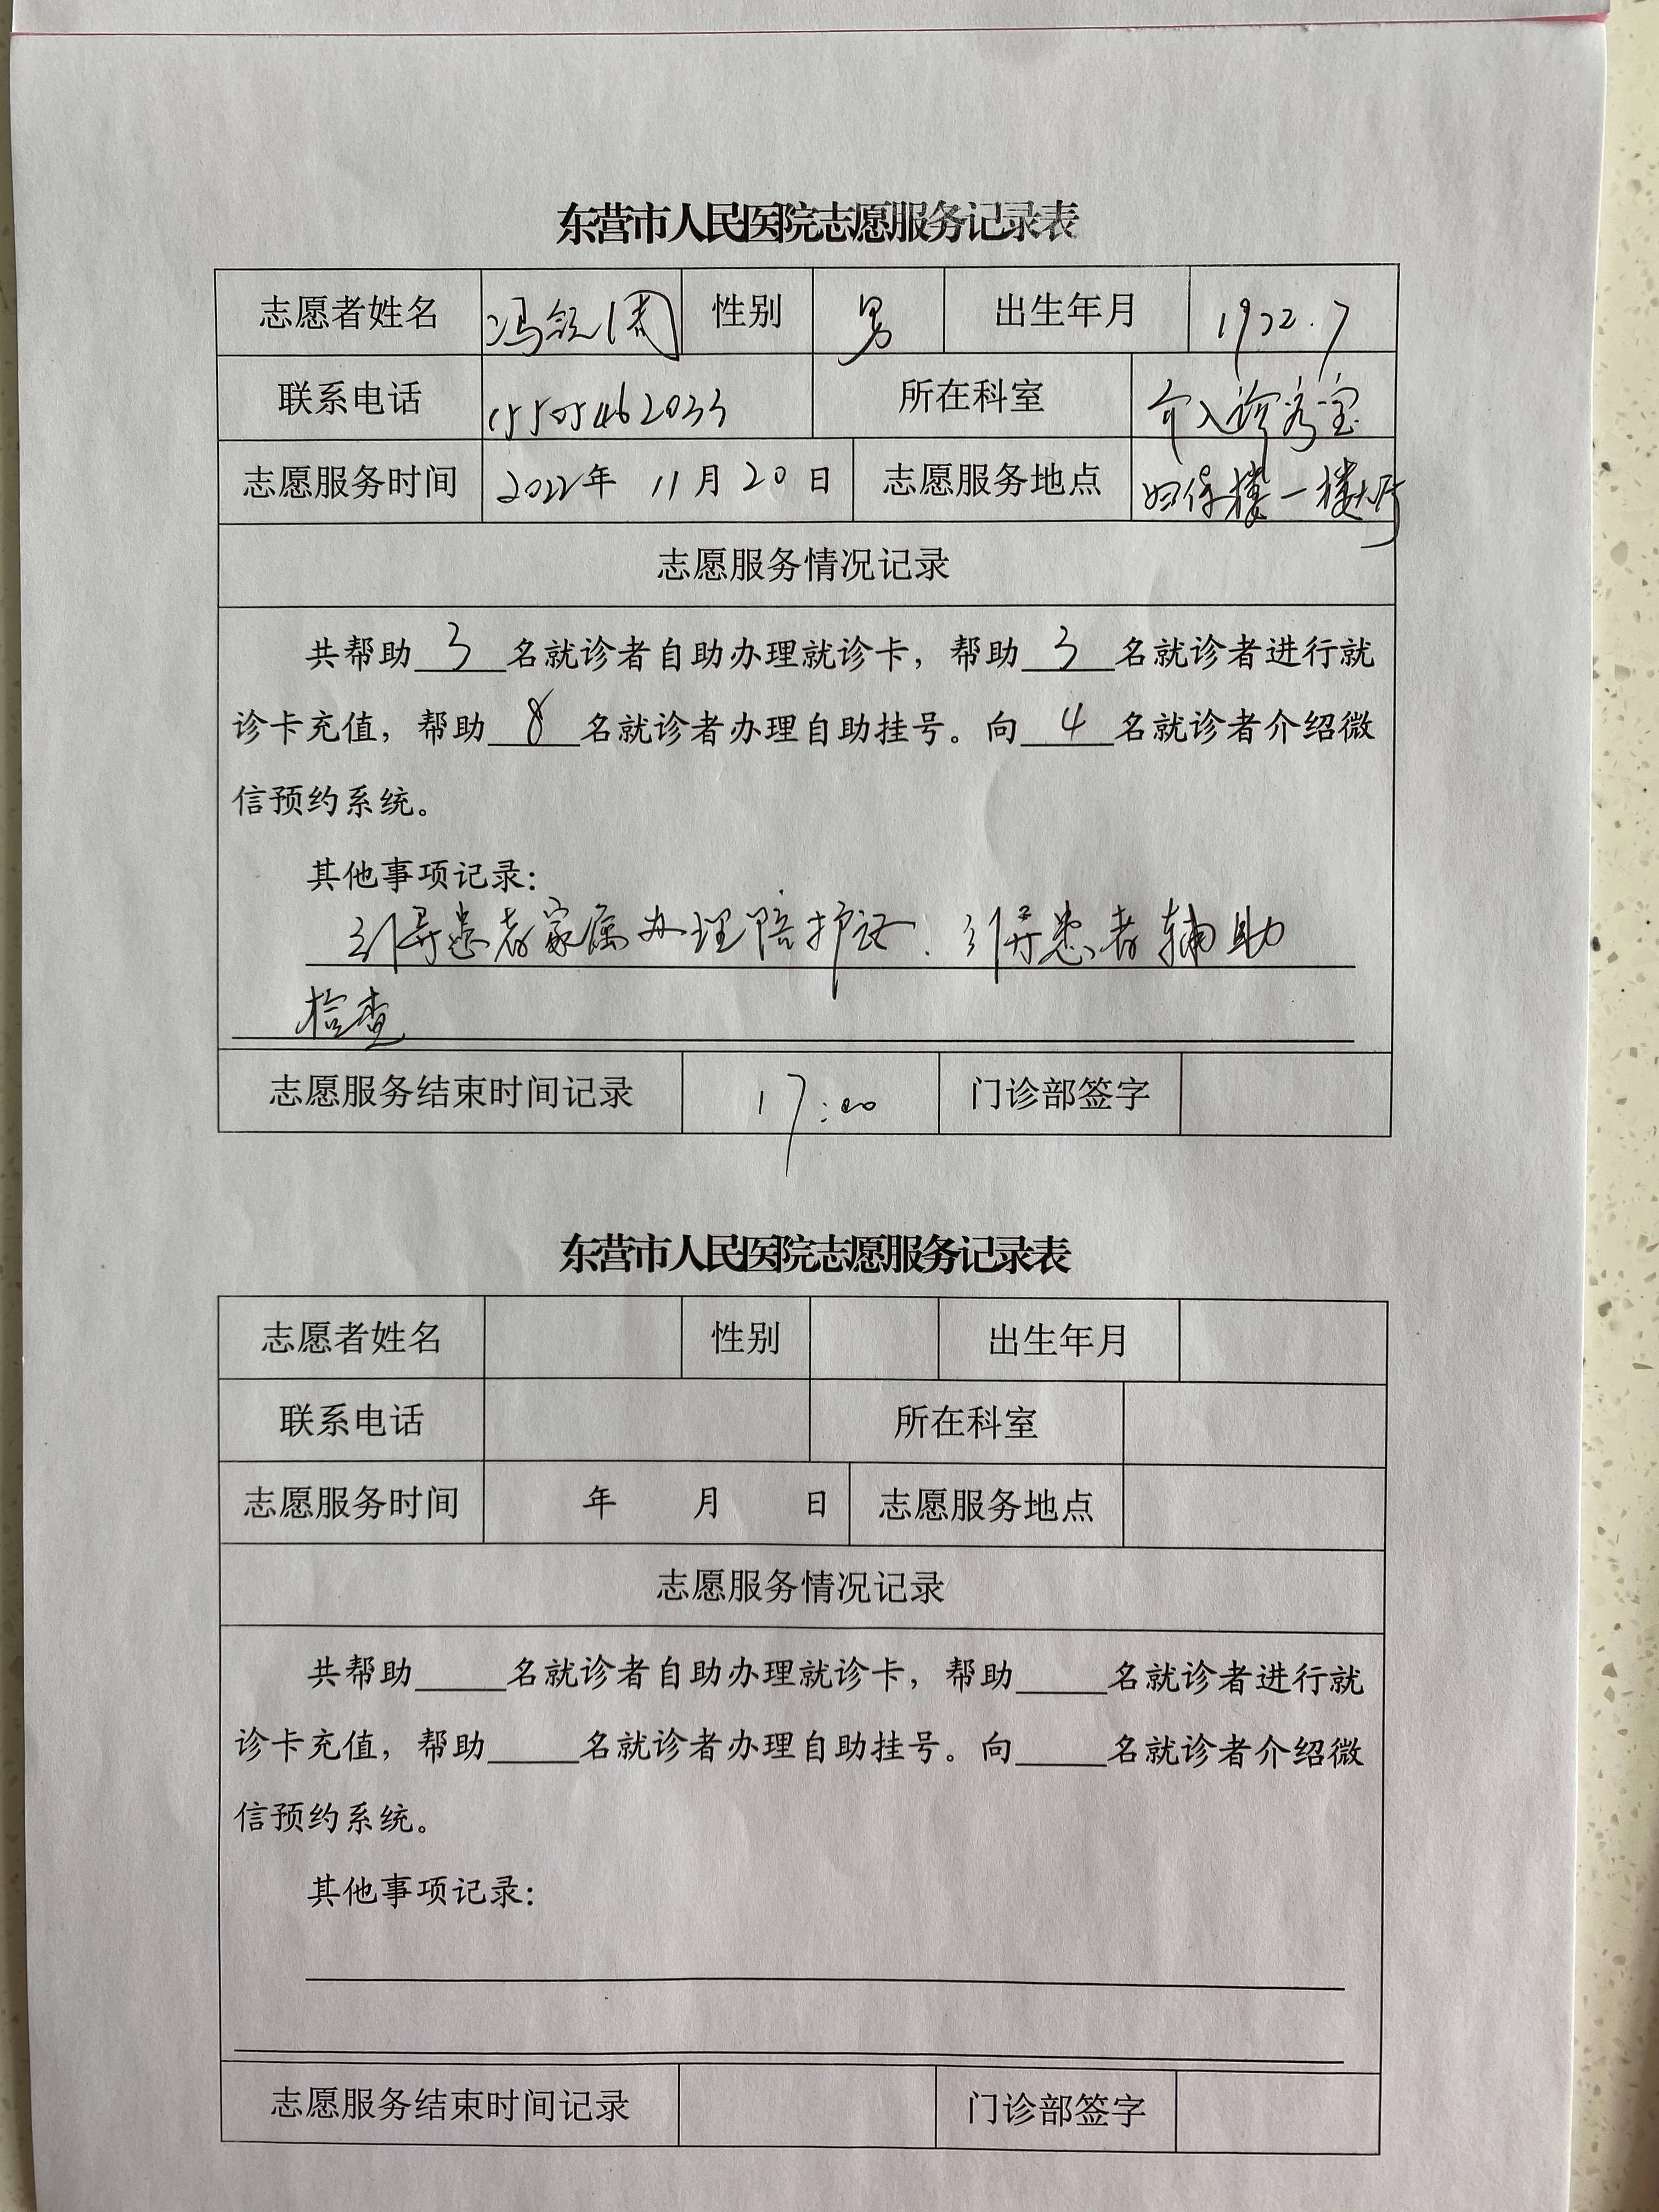 东营市人民医院志愿服务记录表
志愿者姓名 冯 性别 男 出生年月 1972.7
联系电话 15505462033 所在科室 介入诊疗室
志愿服务时间 2022年 11月 20日 志愿服务地点 妇保楼一楼大厅
志愿服务情况记录
共帮助 3 名就诊者自助办理就诊卡，帮助 3 名就诊者进行就
诊卡充值，帮助 8 名就诊者办理自助挂号。向 4 名就诊者介绍微
信预约系统。
其他事项记录：
引导患者家属办理陪护证. 引导患者辅助
检查
志愿服务结束时间记录 17:00 门诊部签字
东营市人民医院志愿服务记录表
志愿者姓名 性别 出生年月
联系电话 所在科室
志愿服务时间 年 月 日 志愿服务地点
志愿服务情况记录
共帮助_____名就诊者自助办理就诊卡，帮助_____名就诊者进行就
诊卡充值，帮助_____名就诊者办理自助挂号。向_____名就诊者介绍微
信预约系统。
其他事项记录：
志愿服务结束时间记录 门诊部签字